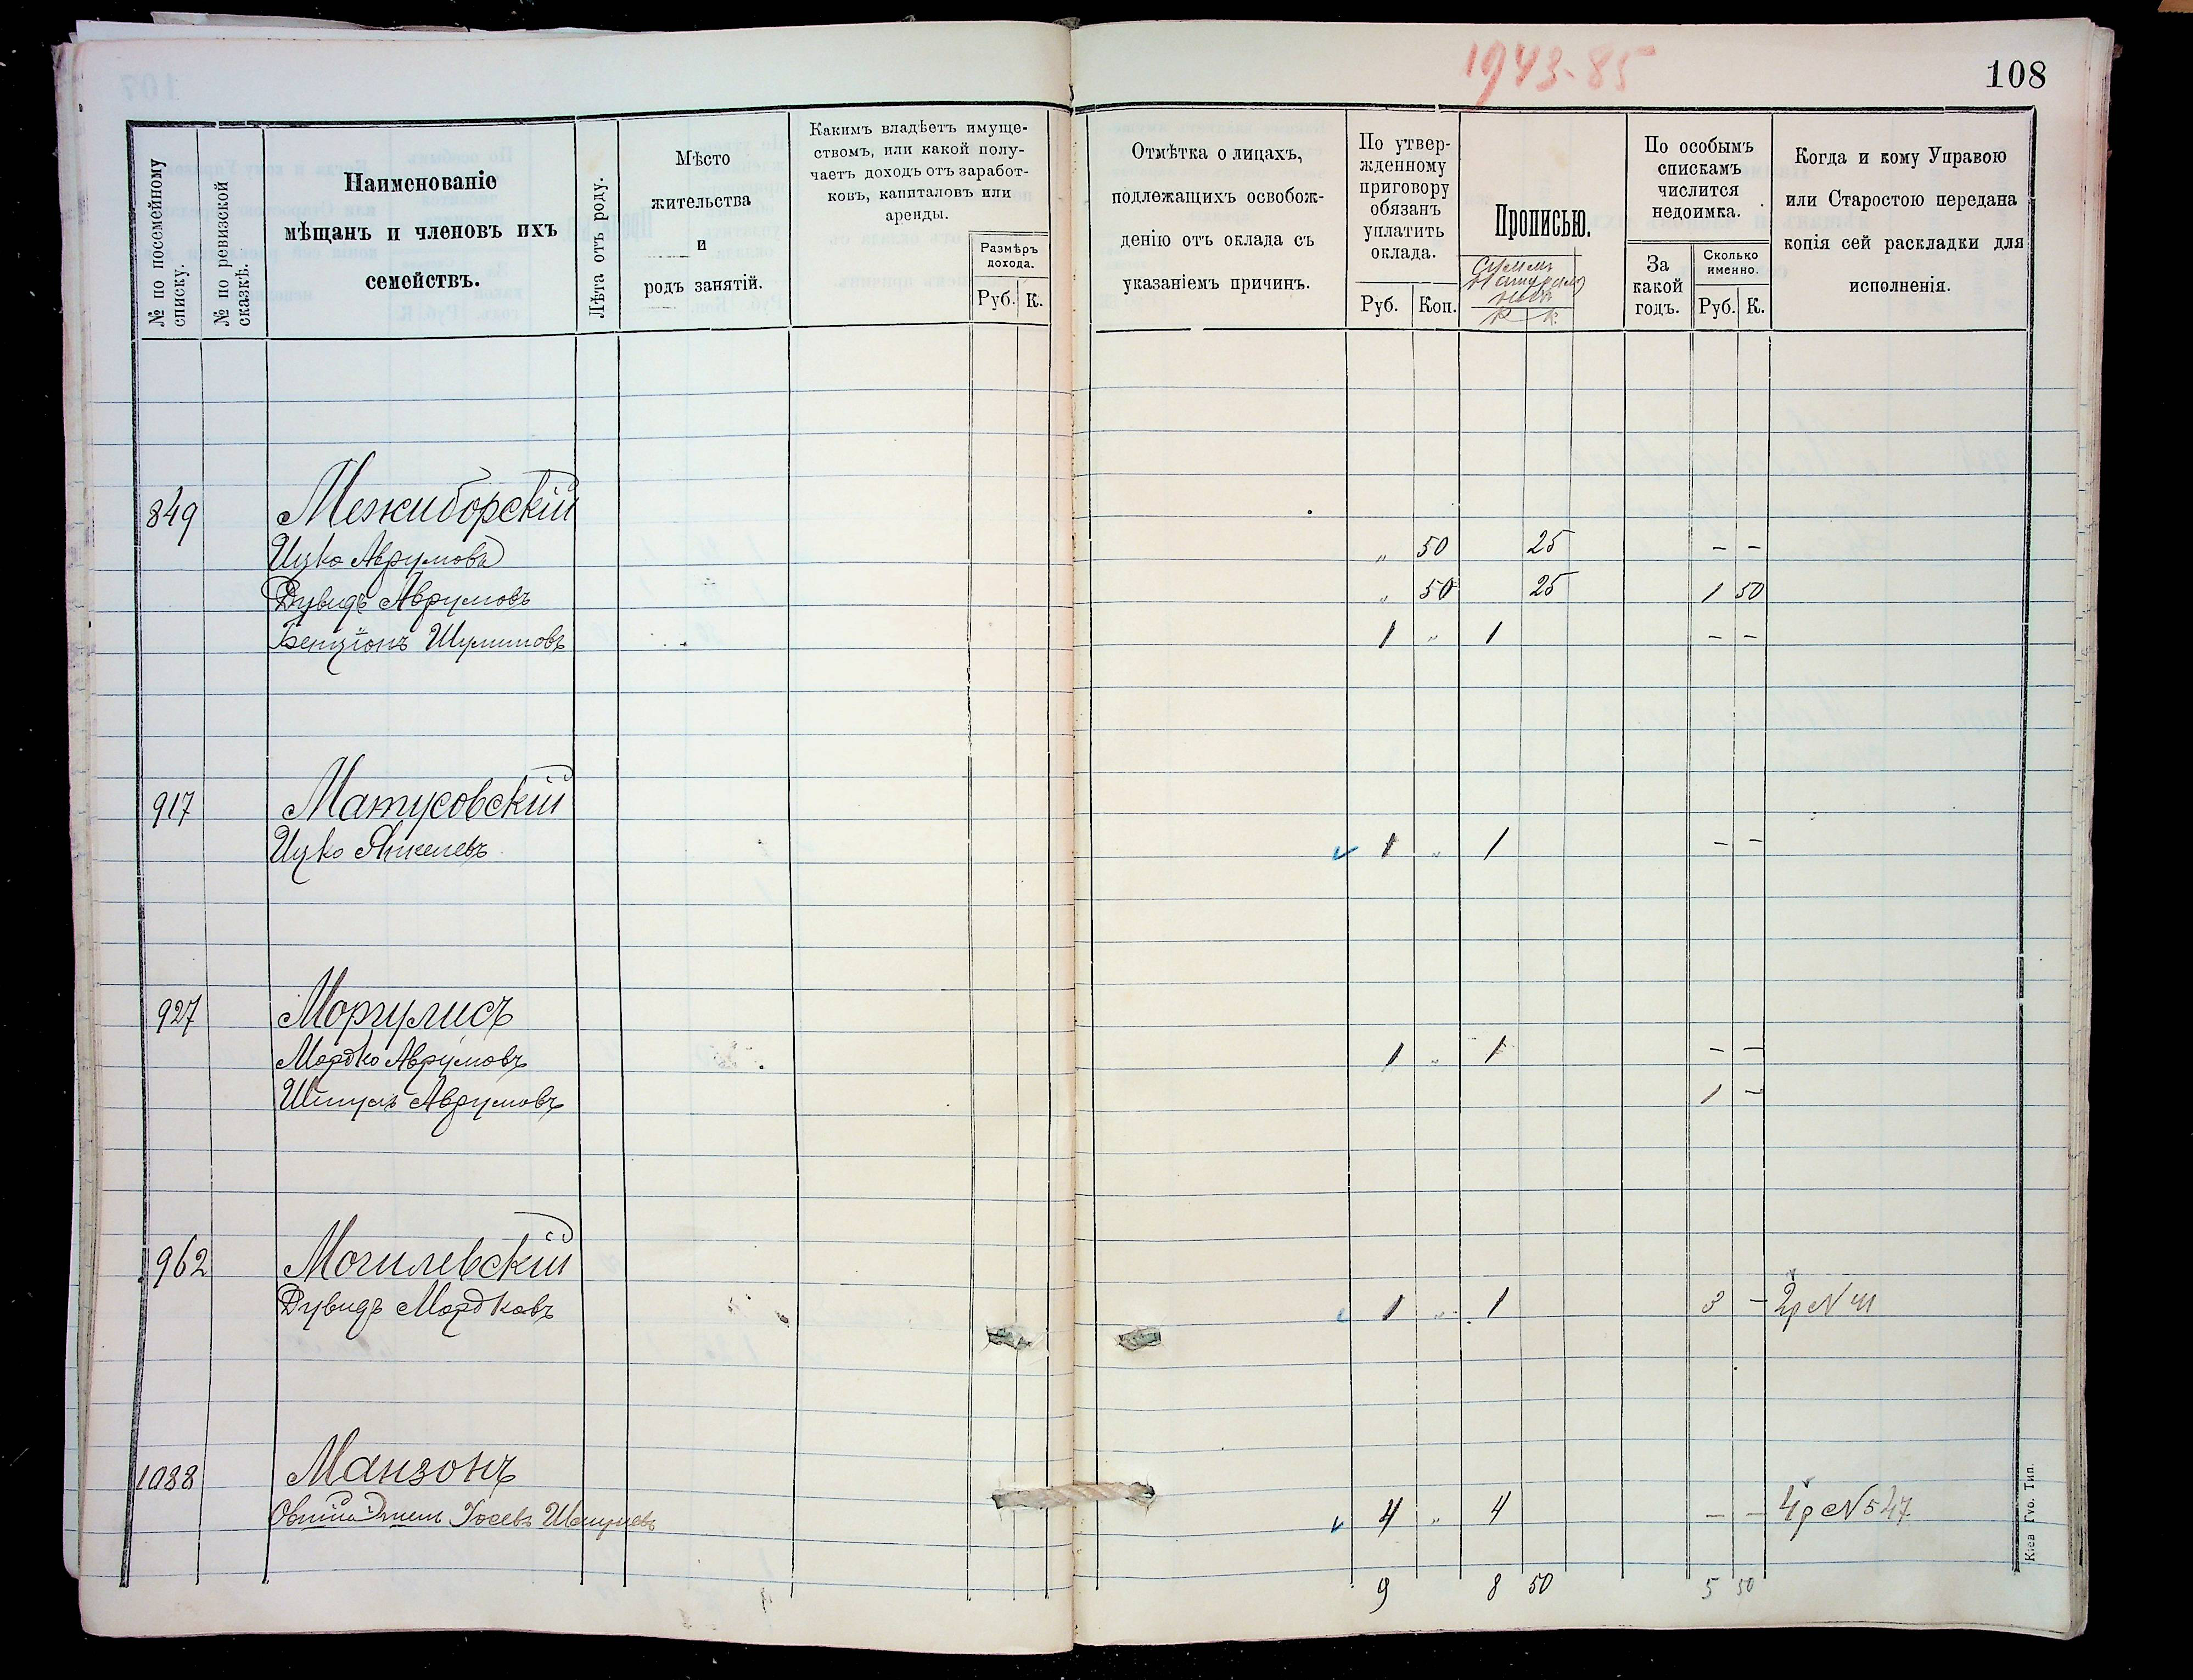 1943-85
108
№ по посемейному списку.
№ по ревизской сказкѣ.
Наименованіе
мѣщанъ и членовъ ихъ
семействъ.
Лѣта отъ роду.
Мѣсто
жительства
и
родъ занятій.
Какимъ владѣетъ имуще-
ствомъ, или какой полу-
чаетъ доходъ отъ заработ-
ковъ, капиталовъ или
аренды.
Размѣръ
дохода.
Руб. К.
Отмѣтка о лицахъ,
подлежащихъ освобож-
денію отъ оклада съ
указаніемъ причинъ.
По утвер-
жденному
приговору
обязанъ
уплатить
оклада.
Руб. Коп.
Прописью.
По особымъ
спискамъ
числится
недоимка.
За
какой
годъ.
Сколько
именно.
Руб. К.
Когда и кому Управою
или Старостою передана
копія сей раскладки для
исполненія.
849 Межиборскій
Ицко Аврумовъ „ 50 25 - -
Дувидъ Аврумовъ „ 50 25 1 50
Бенціонъ Шулимовъ 1 „ 1 - -
917 Матусовскій
Ицко Янкелевъ 1 „ 1 - -
927 Моргулисъ
Мордко Аврумовъ 1 „ 1 - -
Шмулъ Аврумовъ 1 -
962 Могилевскій
Дувидъ Мордковъ 1 „ 1 3 - 2р №41
1088 Манзонъ
Іосевъ Шмулевъ 4 „ 4 - - 4р №547
9 8 50 5 50
Кіев Губ. Тип.